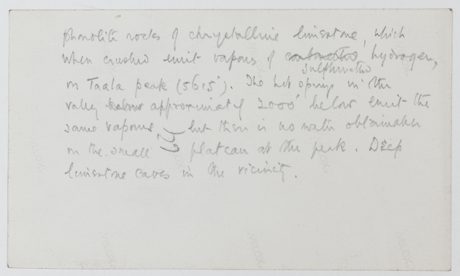 phonolite rocks of chrystalline limestone, which
when crushed emit vapours of hydrogen,
sulphurated
on Taala peak (5615'). The hot spring in the
valley approximately 2000' below emit the
same vapours but there is no water obtainable
on the small plateau at the peak. Deep
limestone caves in the vicinity.